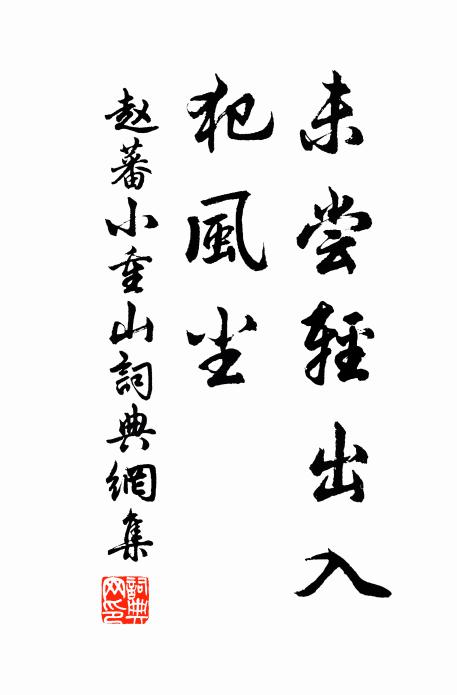 未尝輕出入
犯風尘
赵蕃小重山詞典網集
詞典網印